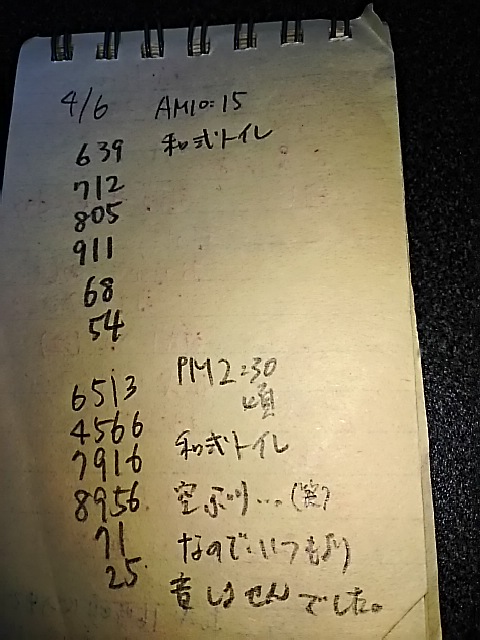 4/6 AM10:15
639 和式トイレ
712
805
911
68
54
PM2:30
6513 頃
4566
7916 和式トイレ
8956 空ぶり…。(笑)
71 なので、いつもより
25 音しませんでした。